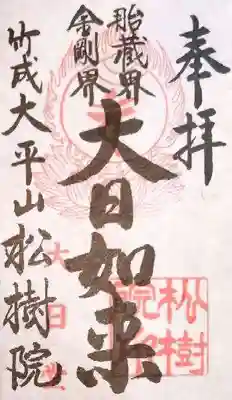 奉拝
胎蔵界
金剛界
大日如来
竹成大平山松樹院
松樹
院
大日堂